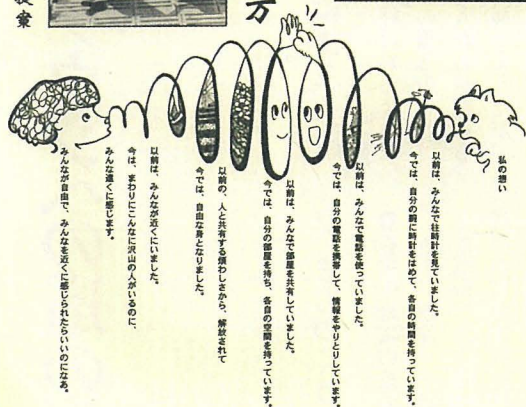 私の想い
以前は、みんなで柱時計を見ていました。
今では、自分の腕に時計をはめて、各自の時間を持っています。
以前は、みんなで電話を使っていました。
今では、自分の電話を携帯して、情報をやりとりしています。
以前は、みんなで部屋を共有していました。
今では、自分の部屋を持ち、各自の空間を持っています。
以前の、人と共有する煩わしさから、解放されて
今では、自由な身となりました。
以前は、みんなが近くにいました。
今は、まわりにこんなに沢山の人がいるのに、
みんな遠くに感じます。
みんなが自由で、みんなを近くに感じられたらいいのになあ。
方
案